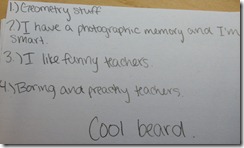 1.) Geometry stuff
2.) I have a photographic memory and I'm
smart.
3.) I like funny teachers.
4.) Boring and preachy teachers.
Cool beard.